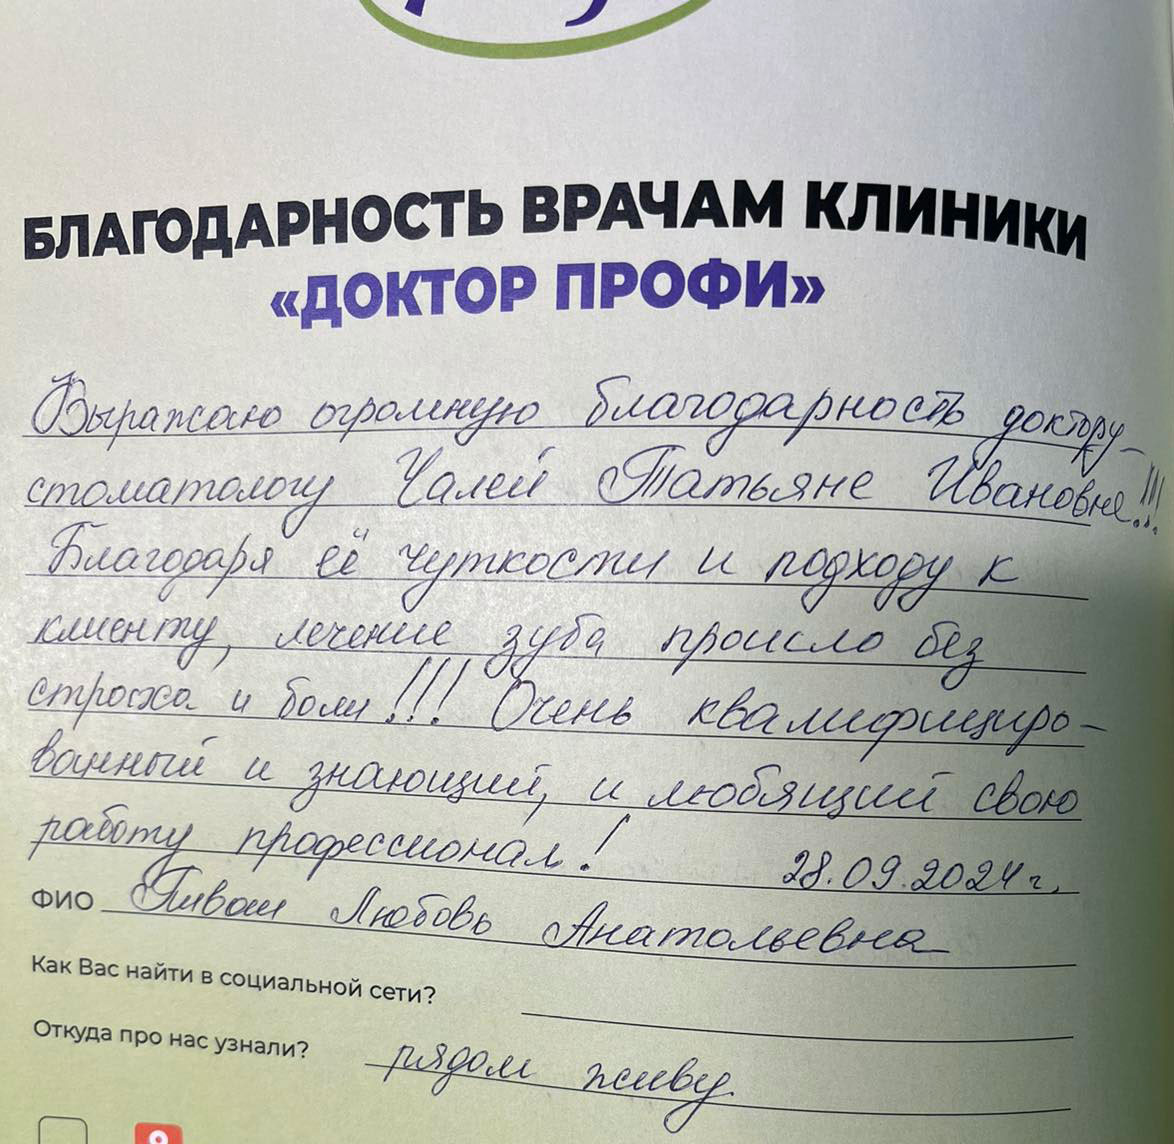 БЛАГОДАРНОСТЬ ВРАЧАМ КЛИНИКИ
«ДОКТОР ПРОФИ»
Выражаю огромную благодарность доктору-
стоматологу Чалей Татьяне Ивановне!!!
Благодаря её чуткости и подходу к
клиенту, лечение зуба прошло без
страха и боли!!! Очень квалифициро-
ванный и знающий, и любящий свою
работу профессионал! 28.09.2024г.
ФИО Любовь Анатольевна
Как Вас найти в социальной сети?
Откуда про нас узнали? рядом живу